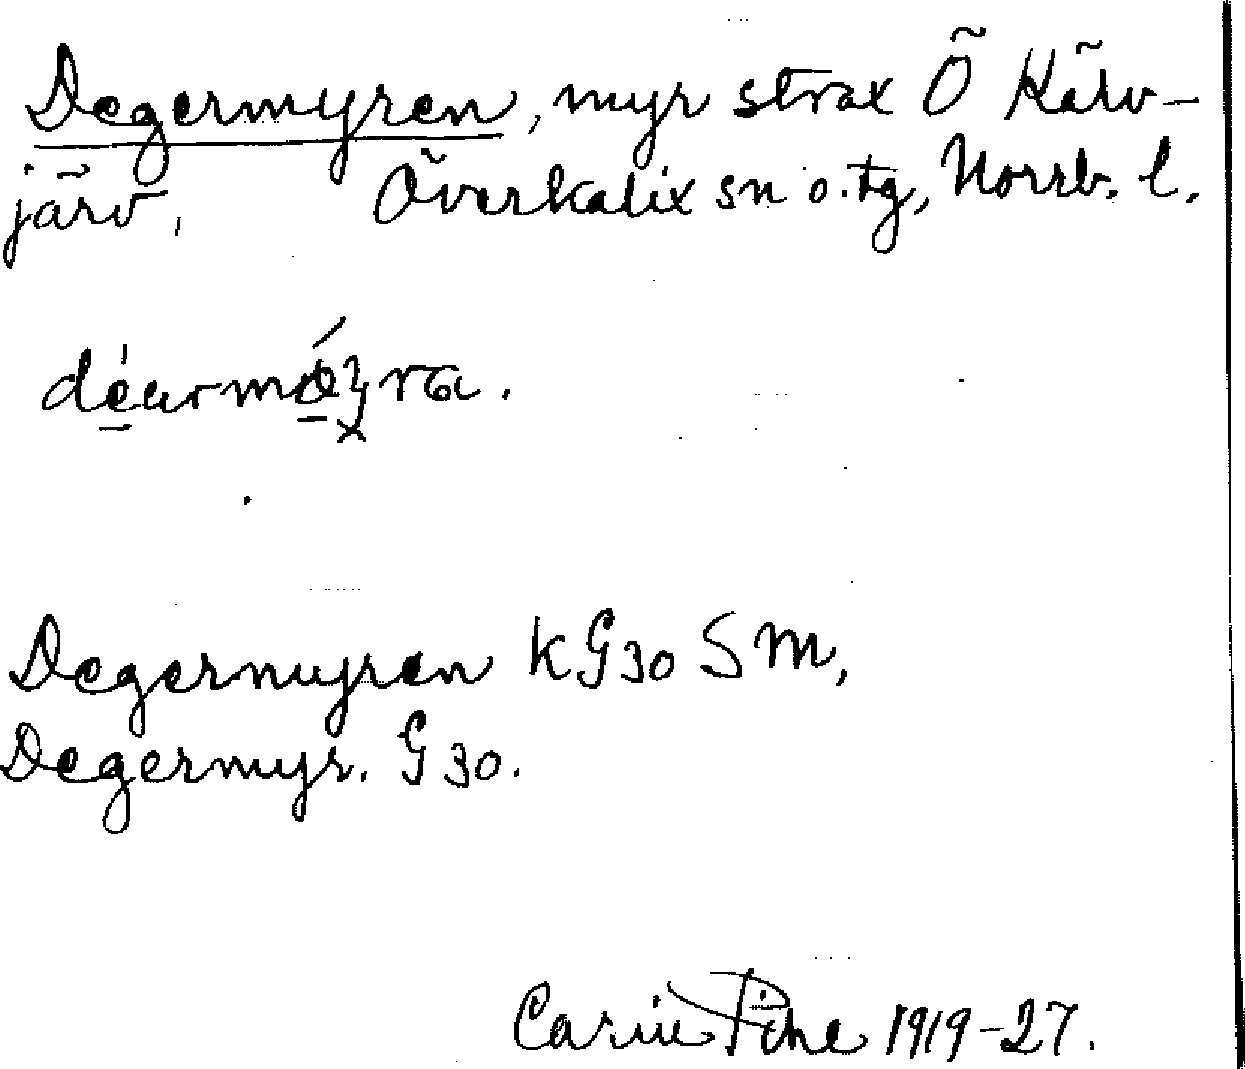 Degermyren, myr strax Ö Kärv-
järv, Överkalix sn o. tg, Norrb. l.
Degermyren KG30 SM,
Degermyr. G30.
Carin Pihl 1919-27.